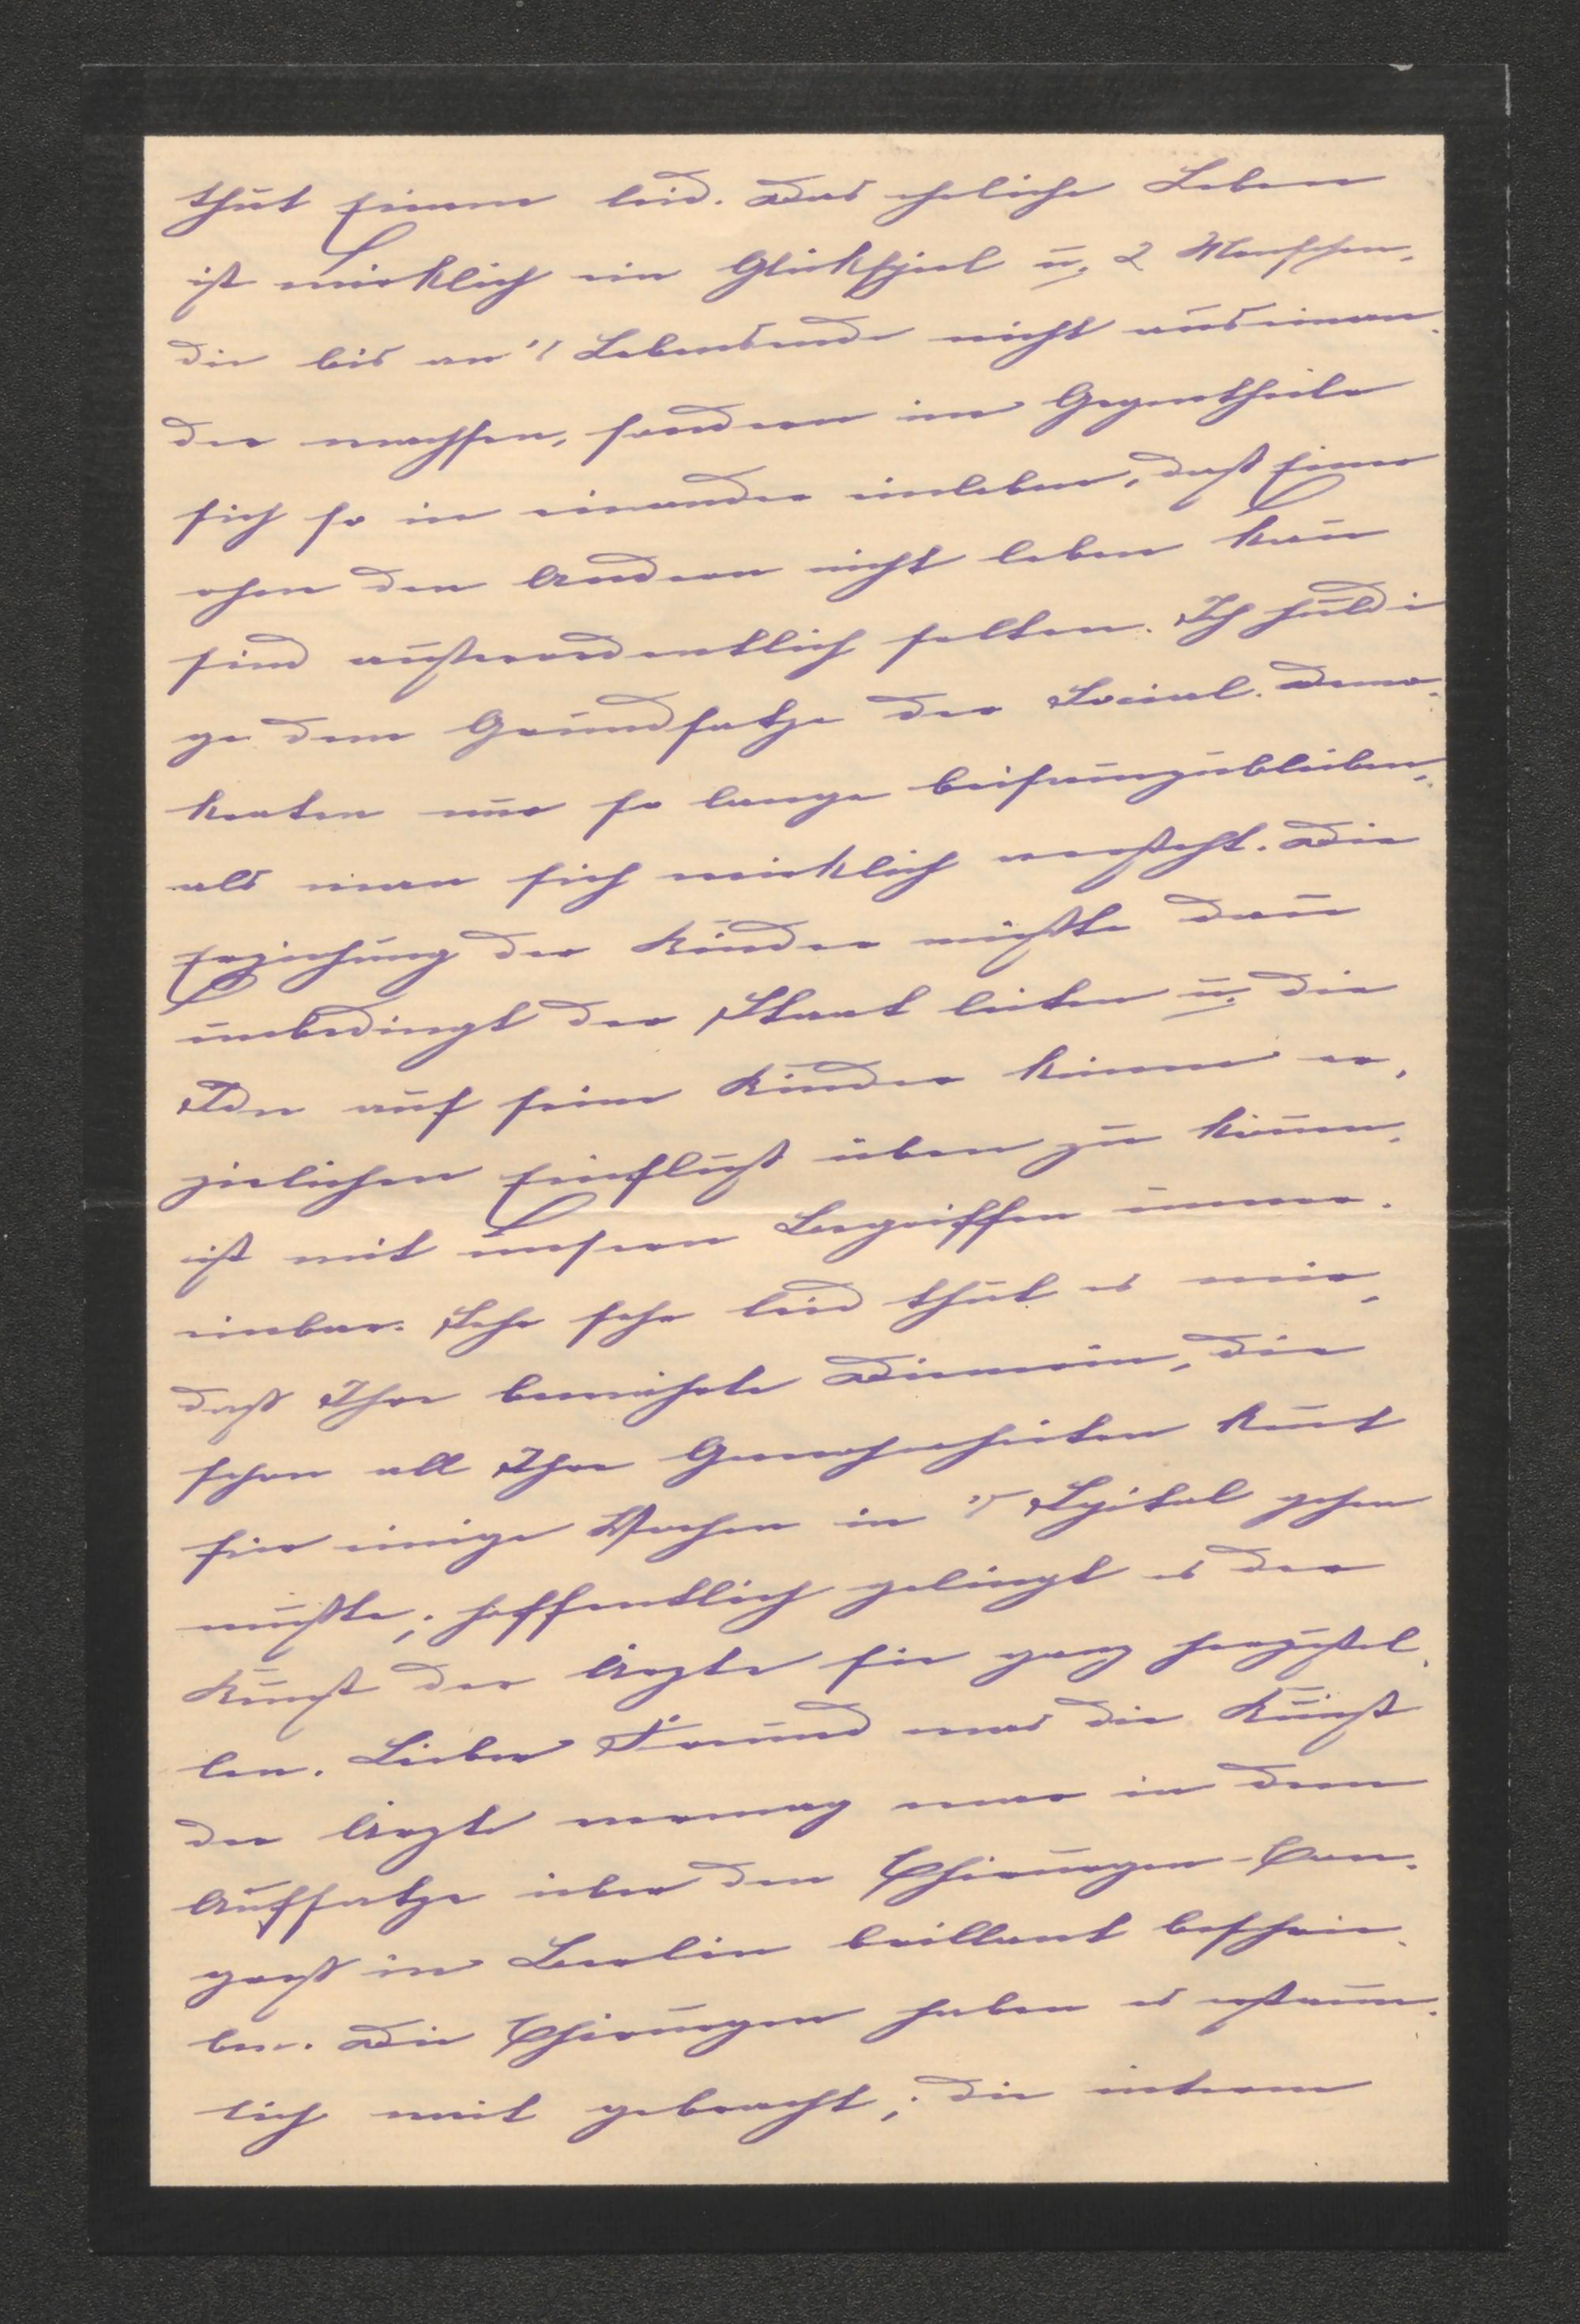 thut Einem leid. Das eheliche Leben
ist wirklich ein Glückspiel u. 2 Menschen,
die bis an's Lebensende nicht auseinan-
der wachsen, sondern im Gegentheile
sich so in einander einleben, daß Einer
ohne den Andern nicht leben kan̄
sind außerordentlich selten. Ich huldi
ge dem Grundsatze der Social-Demo-
kraten nur so lange beisam̄zubleiben,
als man sich wirklich versteht. Die
Erziehung der Kinder müßte dan̄
unbedingt der Staat leiten u. die
Idee auf seine Kinder keinen er-
ziehlichen Einfluß üben zu kön̄en,
ist mit unseren Begriffen unver-
einbar. Sehr sehr leid thut es mir,
daß Ihre bewährte Dienerin, die
schon all Ihre Gewohnheiten kent
für einige Wochen in's Spital gehen
mußte; hoffentlich gelingt es der
Kunst der Ärzte sie ganz herzustel-
len. Lieber Freund was die Kunst
der Ärzte vermag war in dem
Aufsatze über den Chirurgen-Con-
greß in Berlin brillant beschrie-
ben. Die Chirurgen haben es erstaun-
lich weit gebracht; die internen